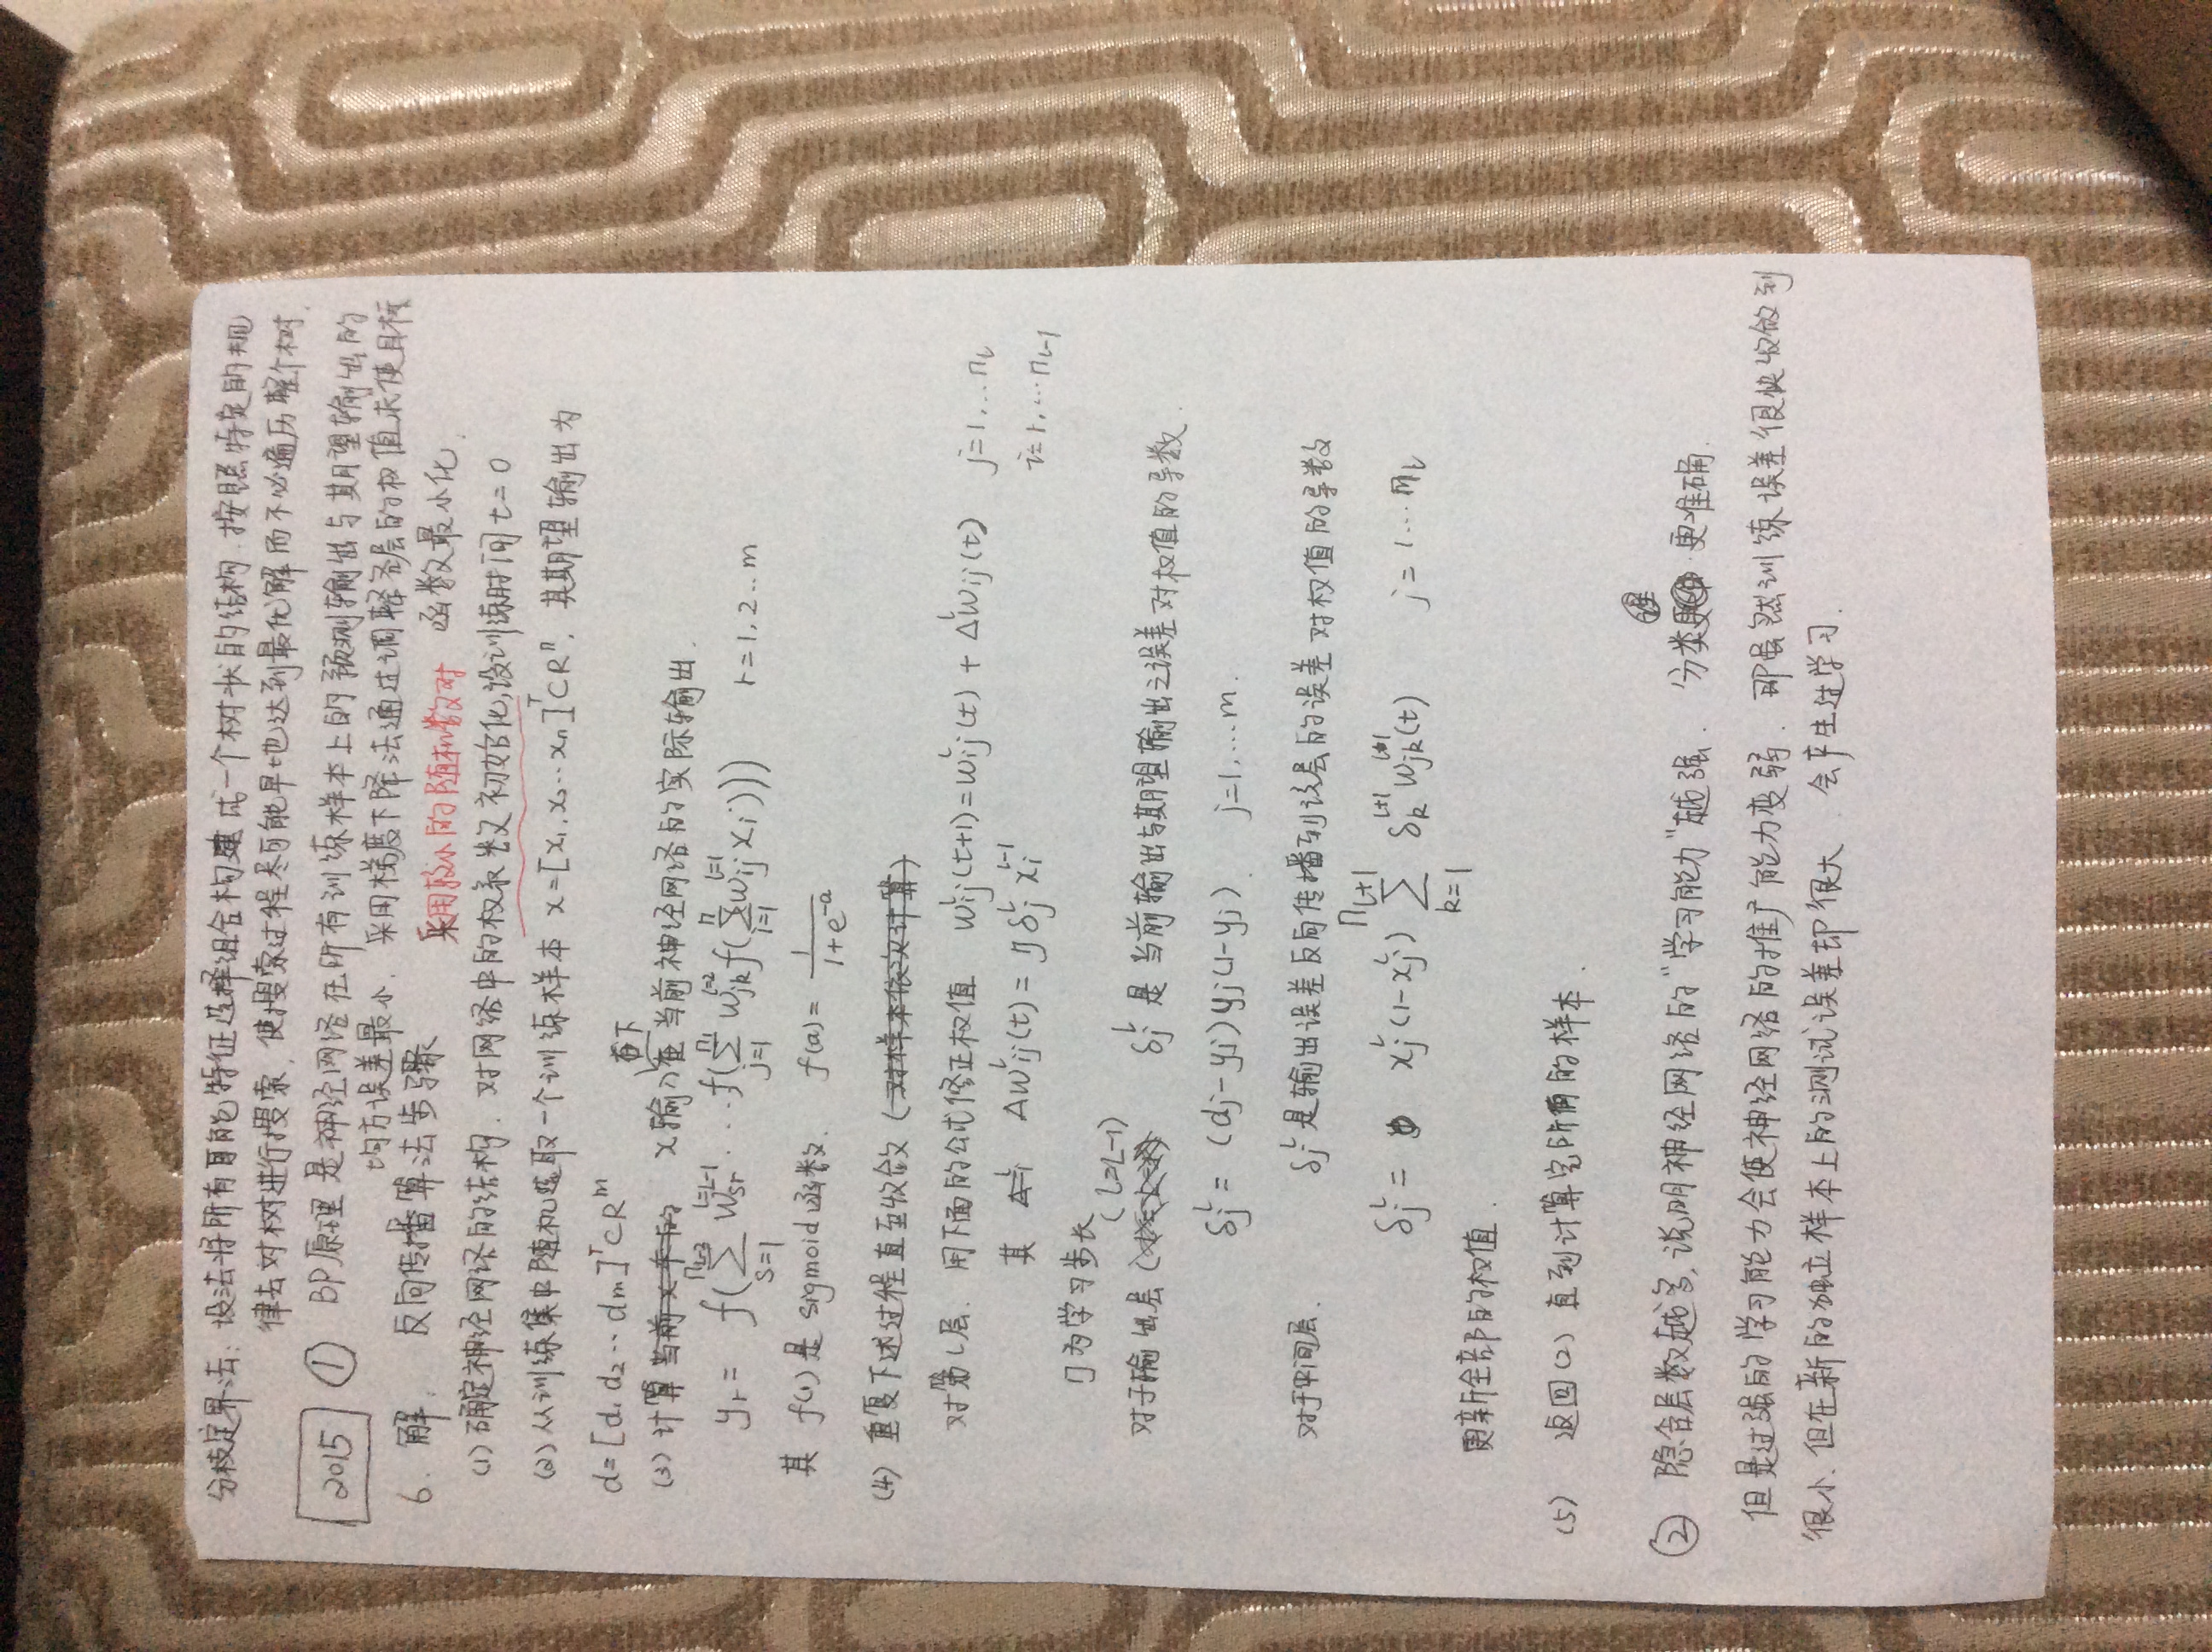 分枝定界法：设法将所有可能特征选择组合构建成一个树状的结构．按照特定的规
律去对树进行搜索，使搜索过程尽可能早地达到最优解而不必遍历整个树．
2015 ① BP原理 是神经网络在所有训练样本上的预测输出与其期望输出的
均方误差最小．采用梯度下降法通过调整各层的权值求使目标
6. 解． 反向传播算法步骤 采用较小的随机数对 函数最小化．
(1) 确定神经网络的结构．对网络中的权系数又初始化,设训练时间 t=0
(2) 从训练集中随机选取一个训练样本 x=[x₁,x₂…xₙ]ᵀCRⁿ, 其期望输出为
d=[d₁ d₂…dm]ᵀCRᵐ
(3) 计算 x输入在当前神经网络的实际输出．
yr= f(∑ s=1 n_{L-2} w_{sr}^{l=L-1} …f(∑ j=1 n₁ w_{jk}^{l=2} f(∑ i=1 n w_{ij}^{l=1} xi))) r=1,2…m
其 f(·)是 sigmoid函数． f(a)= 1/(1+e^{-a})
(4) 重复下述过程直至收敛 (对样本依次计算)
对第 l层．用下面的公式修正权值 w_{ij}^l(t+1)=w_{ij}^l(t) + Δw_{ij}^l(t) j=1,…n_l
其 Δw_{ij}^l(t)= η δ_j^l x_i^{l-1} i=1,…n_{l-1}
η为学习步长
对于输出层 (l=L-1) δ_j^l 是 当前输出与期望输出之误差对权值的导数．
δ_j^l = (dj-yj)yj(1-yj) j=1,…m.
对于中间层． δ_j^l 是输出误差反向传播到该层的误差对权值的导数
δ_j^l = x_j^l(1-x_j^l) ∑ k=1 n_{l+1} δ_k^{l+1} w_{jk}^{l+1}(t) j=1…n_l
更新全部的权值．
(5) 返回(2) 直到计算完所有的样本．
② 隐含层数越多,说明神经网络的"学习能力"越强． 分类 更准确．
但是过强的学习能力会使神经网络的推广能力变弱．即虽然训练误差很快收敛到
很小．但在新的独立样本上的测试误差却很大．会产生过学习．